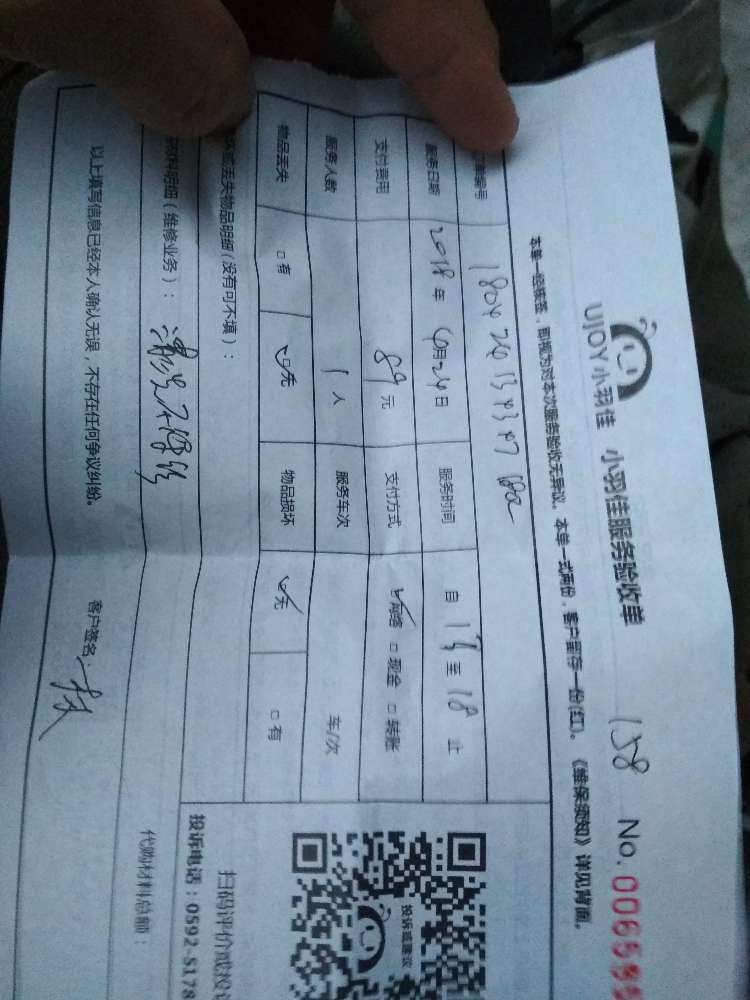 UJOY小羽佳 小羽佳服务验收单 158 No.006595
本单一经核签，即视为对本次服务验收无异议。本单一式两份，客户留存一份(红)。《维保须知》详见背面。
编号
服务日期 2018年 6月24日 服务时间 自 15 至 18 止
支付费用 89元 支付方式 网络 □现金 □转账
服务人数 1人 服务车次 车/次
物品丢失 □有 □无 物品损坏 无 □有
坏或丢失物品明细(没有可不填)：
投诉或建议
扫码评价或投
投诉电话：0592-5178
材料明细(维修业务)：
代购材料总额：
以上填写信息已经本人确认无误，不存在任何争议纠纷。
客户签名：